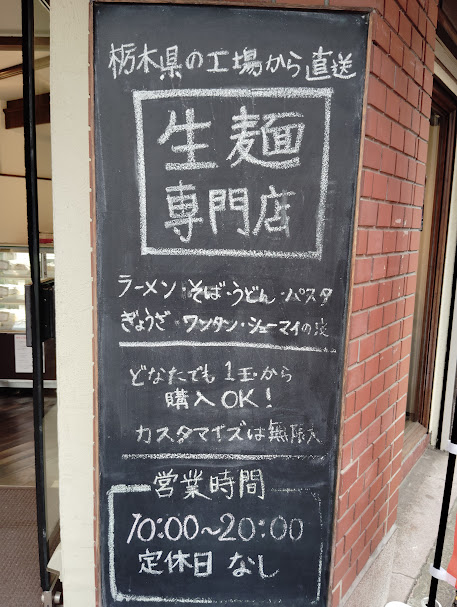 栃木県の工場から直送
生麺
専門店
ラーメン・そば・うどん・パスタ
ぎょうざ・ワンタン・シューマイの皮
どなたでも1玉から
購入OK!
カスタマイズは無限大
営業時間
10:00〜20:00
定休日 なし